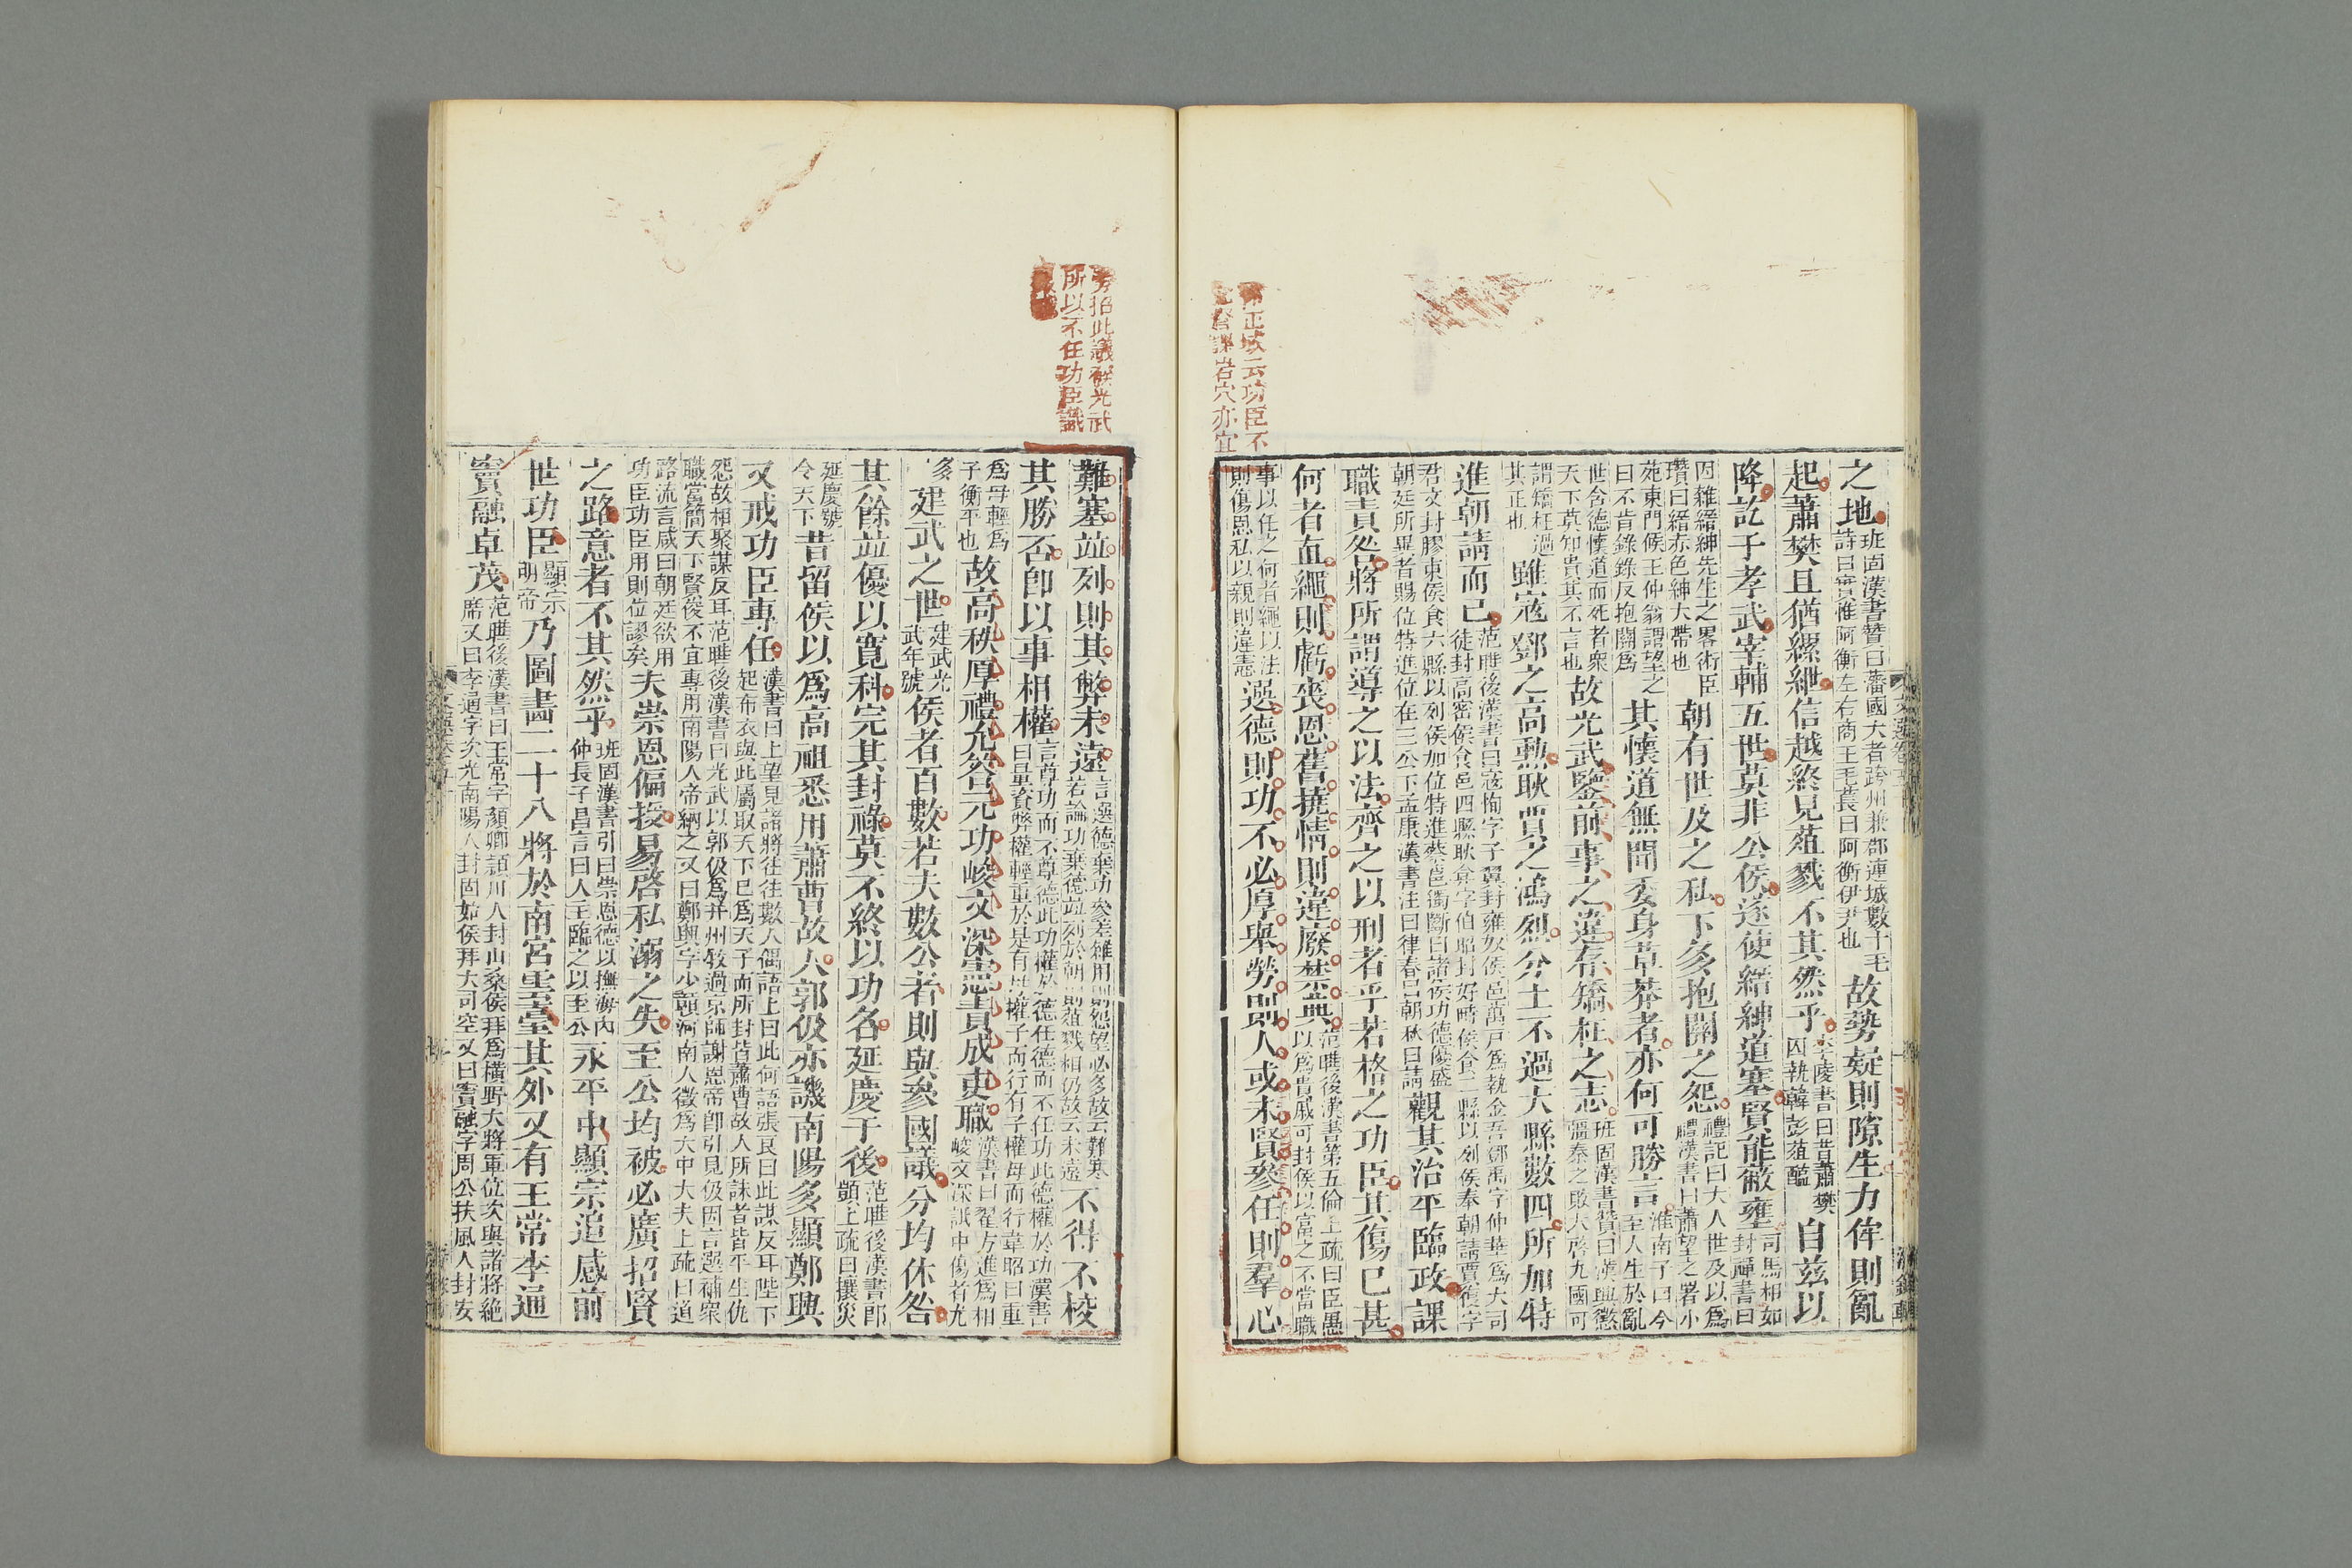 之地班固漢書贊曰藩國大者跨州兼郡連城數十毛詩曰實惟阿衡左右商王毛萇曰阿衡伊尹也故勢疑則隙生力侔則亂
起蕭樊且猶縲紲信越終見葅戮不其然乎李陵書曰昔蕭樊囚執韓彭葅醢自兹以
降訖于孝武宰輔五世莫非公侯遂使縉紳道塞賢能蔽壅司馬相如封禪書曰
因雜縉紳先生之畧術臣瓚曰縉赤色紳大帶也朝有世及之私下多抱關之怨禮記曰大人世及以爲禮漢書曰蕭望之署小
苑東門候王仲翁謂望之曰不肯錄錄反抱關爲其懷道無聞委身草莽者亦何可勝言淮南子曰今至人生於亂
世含德懷道而死者衆天下莫知貴其不言也故光武鑒前事之違存矯枉之志班固漢書贊曰漢興懲
謂矯枉過其正也雖寇鄧之高勲耿賈之鴻烈分土不過大縣數四所加特
進朝請而已范曄後漢書曰寇恂字子翼封雍奴侯邑萬戸爲執金吾鄧禹字仲華爲大司徒封高密侯食邑四縣耿弇字伯昭封好畤侯食二縣以列侯奉朝請賈復字
君文封膠東侯食六縣以列侯加位特進蔡邕獨斷曰諸侯功德優盛朝廷所異者賜位特進位在三公下孟康漢書注曰律春曰朝秋曰請觀其治平臨政課
職責咎將所謂導之以法齊之以刑者乎若格之功臣其傷已甚
何者直繩則虧喪恩舊撓情則違廢禁典范曄後漢書第五倫上疏曰臣愚以爲貴戚可封侯以富之不當職
事以任之何者繩以法則傷恩私以親則違憲選德則功不必厚舉勞則人或未賢參任則羣心
難塞並列則其弊未遠言選德棄功參差雜用則怨望必多故云難塞若論功棄德並列於朝則葅戮相仍故云未遠不得不校
其勝否即以事相權言尊功而不尊德此功權於德任德而不任功此德權於功漢書曰量資幣權輕重於是有母權子而行有子權母而行韋昭曰重
爲母輕爲子衡平也故高秩厚禮允荅元功峻文深憲責成吏職漢書曰翟方進爲相峻文深詆中傷者尤
多建武之世建武光武年號侯者百數若夫數公者則與參國議分均休咎
其餘並優以寬科完其封祿莫不終以功名延慶于後范曄後漢書郎顗上疏曰攘災
延慶號令天下昔留侯以爲高祖悉用蕭曹故人郭伋亦譏南陽多顯鄭興
又戒功臣專任漢書曰上望見諸將往往數人偶語上曰此何語張良曰此謀反耳陛下起布衣與此屬取天下已爲天子而所封皆蕭曹故人所誅者皆平生仇
怨故相聚謀反耳范曄後漢書曰光武以郭伋爲并州牧過京師謝恩帝即引見伋因言選補衆職當簡天下賢俊不宜專用南陽人帝納之又曰鄭興字少贛河南人徵爲大中大夫上疏曰道
路流言咸曰朝廷欲用功臣功臣用則位謬矣夫崇恩偏授易啓私溺之失至公均被必廣招賢
之路意者不其然乎班固漢書引曰崇恩德以撫海內仲長子昌言曰人主臨之以至公永平中顯宗追感前
世功臣顯宗明帝乃圖畵二十八將於南宮雲臺其外又有王常李通
竇融卓茂范曄後漢書曰王常字顏卿潁川人封山桑侯拜爲橫野大將軍位次與諸將絶席又曰李通字次元南陽人封固始侯拜大司空又曰竇融字周公扶風人封安
正域云功臣不
岩穴亦宜
招此議光武
所以不任功臣識